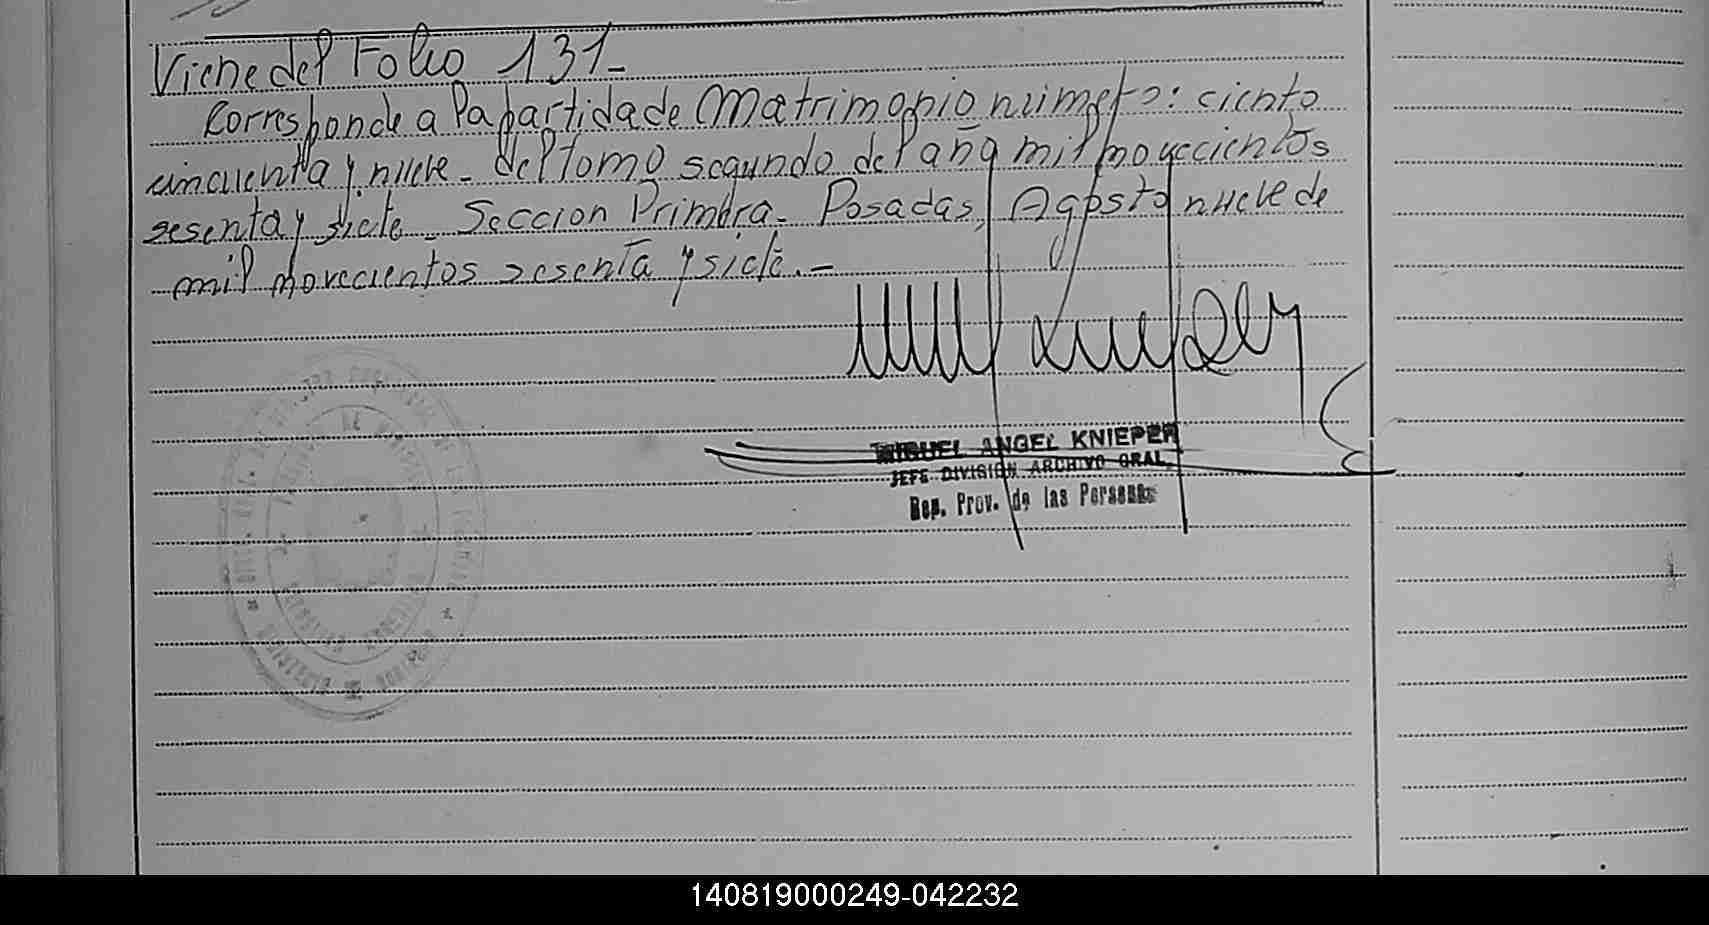 Viene del Folio 131-
Corresponde a la partida de Matrimonio número: ciento
cincuenta y nueve - del tomo segundo del año mil novecientos
sesenta y siete - Seccion Primera - Posadas, Agosto nueve de
mil novecientos sesenta y siete.-
MIGUEL ANGEL KNIEPER
JEFE DIVISION ARCHIVO GRAL.
Rep. Prov. de las Personas
140819000249-042232